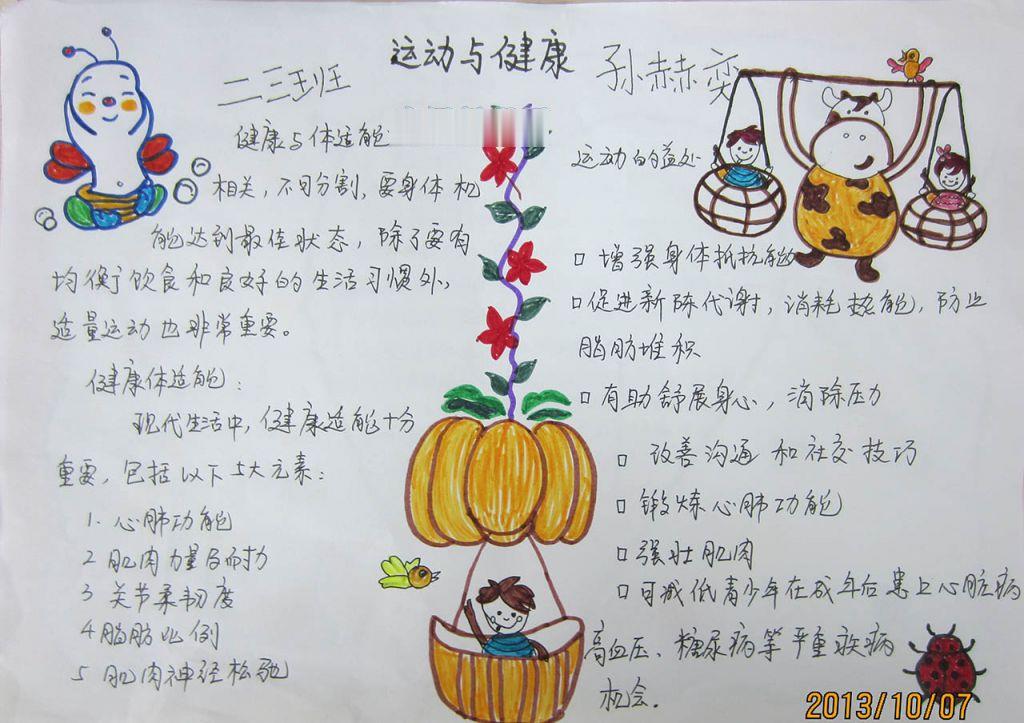 运动与健康
二三班
孙赫奕
健康与体适能
相关，不可分割，要身体机
能达到最佳状态，除了要有
均衡饮食和良好的生活习惯外，
适量运动也非常重要。
健康体适能：
现代生活中，健康适能十分
重要，包括以下5大元素：
1. 心肺功能
2 肌肉力量及耐力
3 关节柔韧度
4 脂肪比例
5 肌肉神经松弛
运动的益处
□ 增强身体抵抗能
□ 促进新陈代谢，消耗热能，防止
脂肪堆积
□ 有助舒展身心，消除压力
□ 改善沟通和社交技巧
□ 锻炼心肺功能
□ 强壮肌肉
□ 可减低青少年在成年后患上心脏病
高血压、糖尿病等严重疾病
机会.
2013/10/07